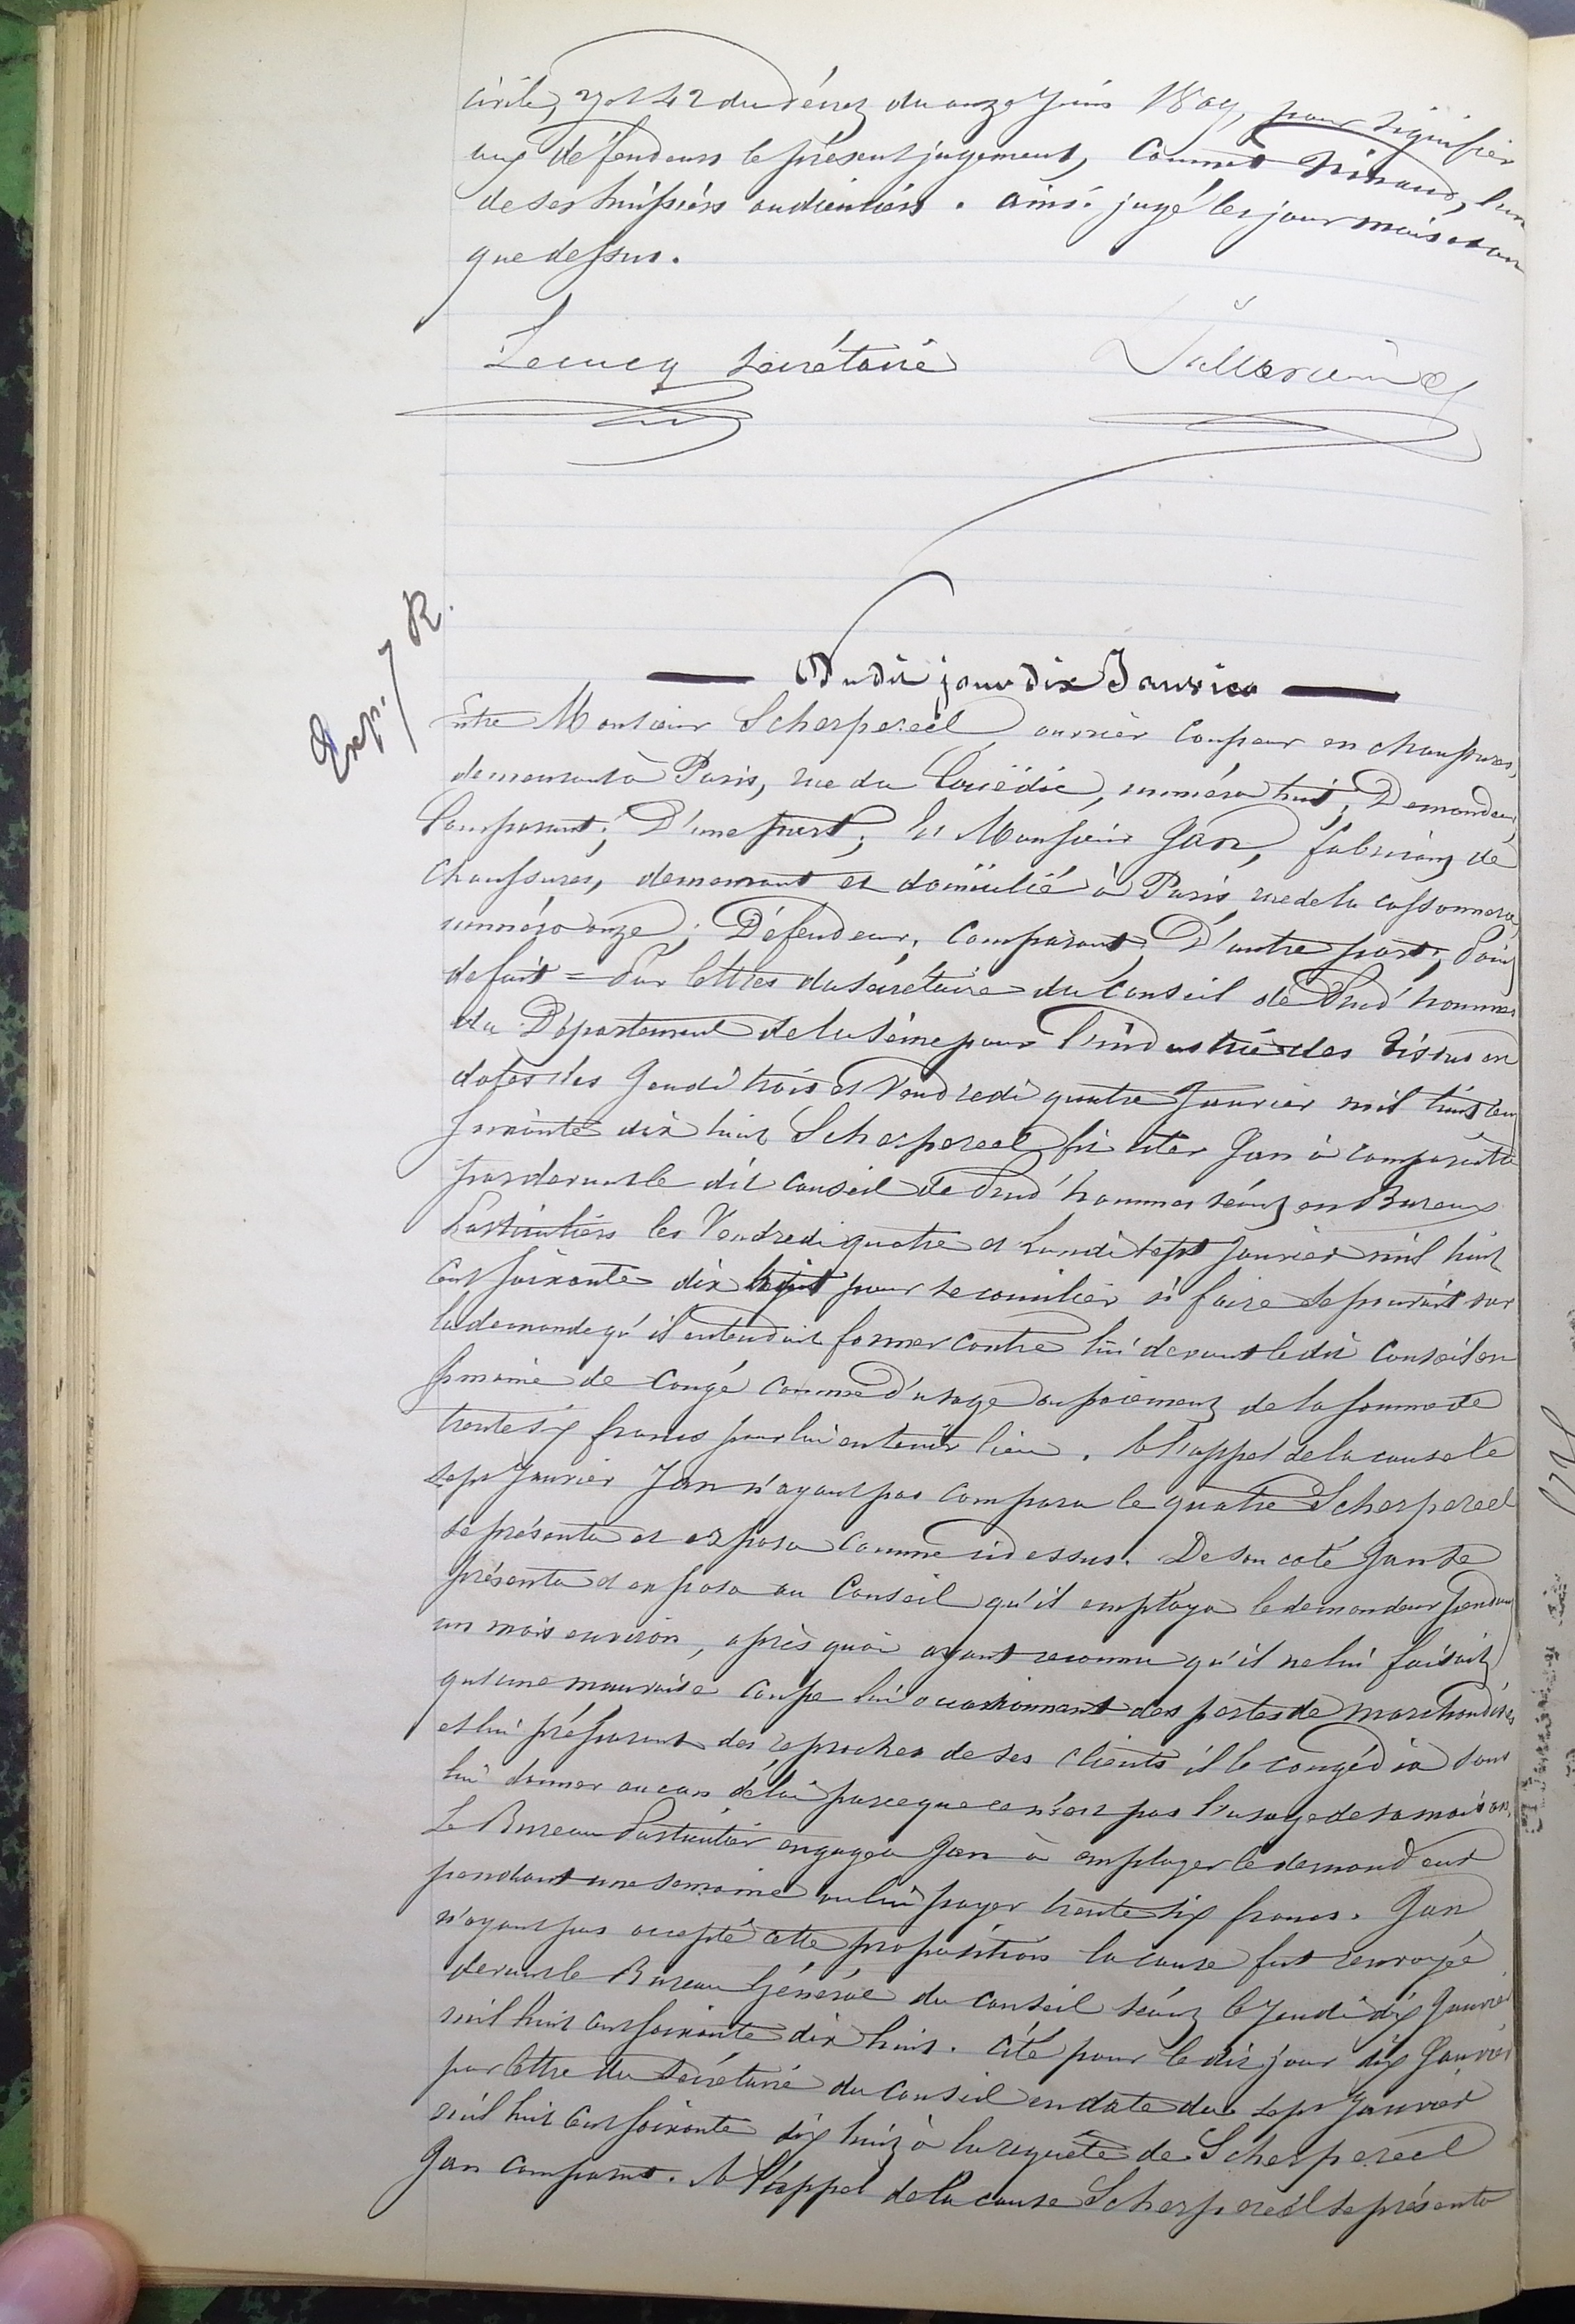 civile, 27 et 42 du décret du onze Juin 1809, pour signifier
aux défendeurs le présent jugement, commet l'un
de ses huissiers audienciers. ainsi jugé les jour mois et an
que dessus.
Lecucq secrétaire
Exp. / R.
Dudit jour dix Janvier
Entre Monsieur Scherpereel, ouvrier coupeur en chaussures,
demeurant à Paris, rue du numéro huit; Demandeur;
Comparant; D'une part; Et Monsieur Jan, fabricant de
chaussures, demeurant et domicilié à Paris rue de la cossonnerie,
numéro onze; Défendeur; Comparant; D'autre part; Point
de fait = Par lettres du secrétaire du Conseil de Prud'hommes
du Département de la Seine pour l'industrie des tissus en
dates des Jeudi trois et Vendredi quatre Janvier mil huit cent
soixante dix huit Scherpereel fit citer Jan à comparaître
pardevant le dit Conseil de Prud'hommes séant en Bureaux
Particuliers les Vendredi quatre et Lundi sept Janvier mil huit
cent soixante dix huit pour se concilier si faire se pouvait sur
la demande qu'il entendait former contre lui devant le dit Conseil en
semaine de congé comme d'usage ou paiement de la somme de
trente six francs pour lui en tenir lieu. A l'appel de la cause le
sept Janvier Jan n'ayant pas comparu le quatre Scherpereel
se présenta et exposa comme ci dessus. De son coté Jan se
présenta et exposa au Conseil qu'il employa le demandeur pendant
un mois environ, après quoi ayant reconnu qu'il ne lui faisait
qu'une mauvaise coupe lui occasionnant des pertes de marchandises
et lui préparant des reproches de ses clients il le congédia sans
lui donner aucun délai parceque ce n'est pas l'usage de sa maison.
Le Bureau Particulier engagea Jan à employer le demandeur
pendant une semaine ou lui payer trente six francs. Jan
n'ayant pas accepté cette proposition la cause fut renvoyée
devant le Bureau Général du Conseil séant le Jeudi dix Janvier
mil huit cent soixante dix huit. Cité pour le dit jour dix Janvier
par lettre du secrétaire du Conseil en date du sept Janvier
mil huit cent soixante dix huit à la requête de Scherpereel
Jan comparut. A l'appel de la cause Scherpereel se présenta